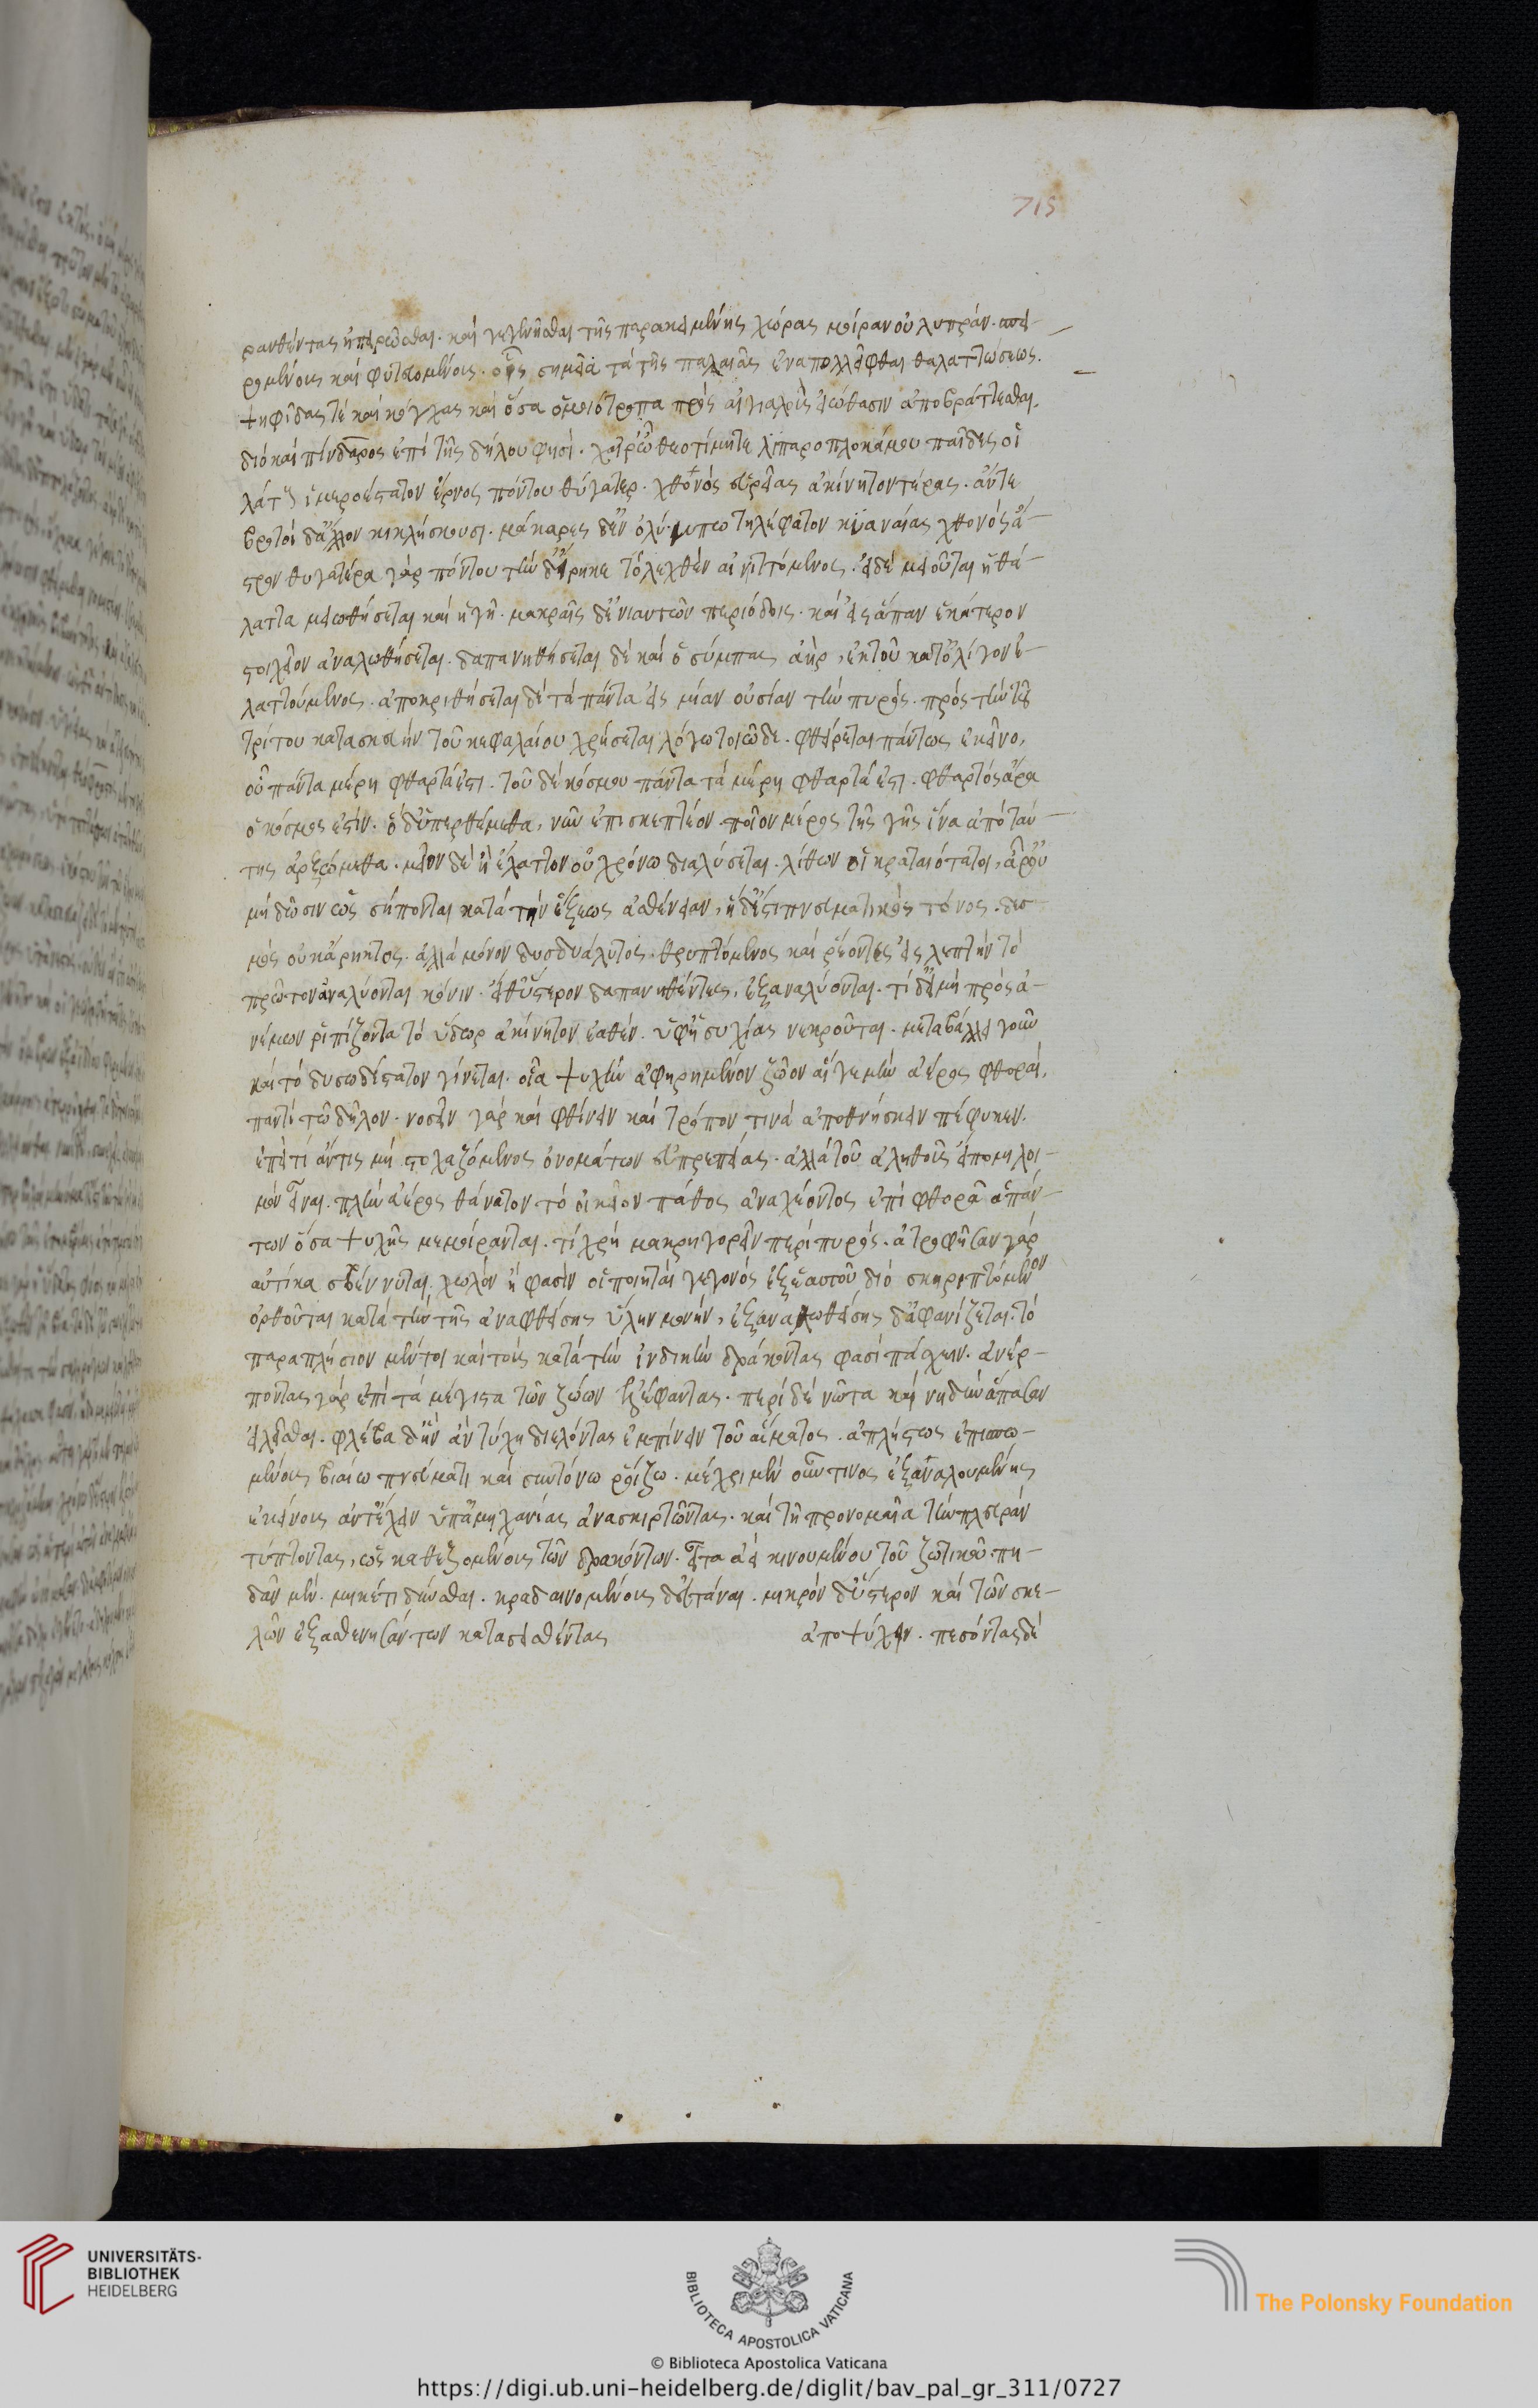 715
ρανθέντας ἠπειρῶσθαι. καὶ γεγενῆσθαι τῆς παρακειμένης χώρας μοίραν οὐ λυπράν. σπει-
ρομένους καὶ φυτευομένους. οἷς σημεῖα τὰ τῆς παλαιᾶς ἐναπολελεῖφθαι θαλαττώσεως.
ψηφῖδας τὲ καὶ κόγχας καὶ ὅσα ὁμοιότροπα πρὸς αἰγιαλοὺς εἰώθασιν ἀποβράττεσθαι.
διὸ καὶ πίνδαρος ἐπὶ τῆς δήλου φησί. χαῖρ' ὦ θεοτίμητε λιπαροπλοκάμου παῖδες οἱ
λάτ ἱμεροέστατον ἔρνος πόντου θύγατερ. χθονὸς εὐρείας ἀκίνητον τέρας. ἄντε
βροτοὶ δ' ἄλλον κικλήσκουσι. μάκαρες δ' ἐν ὀλύμπω τηλέφατον κυανέας χθονὸς ἄ-
στρον θυγατέρα γὰρ πόντου τὴν δ' εἴρηκε τὸ λεχθὲν αἰνιττόμενος. εἰ δὲ μειοῦται ἡ θά-
λαττα μειωθήσεται καὶ ἡ γῆ. μακραῖς δ' ἐνιαυτῶν περιόδοις. καὶ εἰς ἅπαν ἑκάτερον
στοιχεῖον ἀναλωθήσεται. δαπανηθήσεται δὲ καὶ ὁ σύμπας ἀὴρ, ἐκ τοῦ κατ' ὀλίγον ἐ-
λαττούμενος. ἀποκριθήσεται δὲ τὰ πάντα εἰς μίαν οὐσίαν τὴν πυρός. πρὸς τὴν τοῦ
τρίτου κατασκευὴν τοῦ κεφαλαίου χρήσεται λόγω τοιῶδε. φθείρεται πάντως ἐκεῖνο,
οὗ πάντα μέρη φθαρτά ἐστι. τοῦ δὲ κόσμου πάντα τὰ μέρη φθαρτά ἐστι. φθαρτὸς ἄρα
ὁ κόσμος ἐστίν. ὃ δ' ὑπερθέμεθα, νῦν ἐπισκεπτέον. ποῖον μέρος τῆς γῆς ἵνα ἀπὸ ταύ-
της ἀρξώμεθα. μεῖον δὲ ἢ ἔλαττον οὐ χρόνω διαλύσεται. λίθων οἱ κραταιότατοι, ἆρ' οὐ
μὴ δῶσιν ὡς σήπονται κατὰ τὴν ἕξεως ἀσθένειαν, ἡ δ' ἔστι πνευματικὸς τόνος. δεσ
μὸς οὐκ ἄρρηκτος. ἀλλὰ μόνον δυσδιάλυτος. θρυπτόμενος καὶ ῥέοντες εἰς λεπτὴν τὸ
πρῶτον ἀναλύονται κόνιν. εἶθ' ὕστερον δαπανηθέντες, ἐξαναλύονται. τί δ' εἰ μὴ πρὸς ἀ-
νέμων ῥιπίζοντα τὸ ὕδωρ ἀκίνητον ἐαθέν. ὑφ' ἡσυχίας νεκροῦται. μεταβάλλει γοῦν
καὶ τὸ δυσωδέστατον γίνεται. οἷα ψυχὴν ἀφηρημένον ζῶον αἵ γε μὴν ἀέρος φθοραὶ,
παντί τω δῆλον. νοσεῖν γὰρ καὶ φθίνειν καὶ τρόπον τινὰ ἀποθνήσκειν πέφυκεν.
ἐπεὶ τί ἄν τις μὴ στοχαζόμενος ὀνομάτων εὐπρεπείας. ἀλλὰ τοῦ ἀληθοῦς εἴποι μὴ λοι-
μὸν εἶναι. πλὴν ἀέρος θάνατον τὸ οἰκεῖον πάθος ἀναχέοντος ἐπὶ φθορᾶ ἁπάν-
των ὅσα ψυχῆς μεμοίρανται. τί χρὴ μακρηγορεῖν περὶ πυρός. ἀτροφῆσαν γὰρ
αὐτίκα σβέννυται, χωλὸν ἧ φασὶν οἱ ποιηταὶ γεγονὸς ἐξ ἑαυτοῦ διὸ σκηριπτόμενον
ὀρθοῦται κατὰ τὴν τῆς ἀναφθείσης ὕλην μονὴν, ἐξαναλωθείσης δ' ἀφανίζεται. τὸ
παραπλήσιον μέντοι καὶ τοὺς κατὰ τὴν ἰνδικὴν δράκοντας φασὶ πάσχειν. ἀνέρ-
ποντας γὰρ ἐπὶ τὰ μέγιστα τῶν ζώων ἐλέφαντας. περὶ δὲ νῶτα καὶ νηδὺν ἅπασαν
εἰλεῖσθαι. φλέβα δ' ἣν ἂν τύχη διελόντας ἐμπίνειν τοῦ αἵματος. ἀπλήστως ἐπισπω-
μένους βιαίω πνεύματι καὶ συντόνω ῥοίζω. μέχρι μὲν οὖν τινος ἐξαναλουμένης
ἐκείνους ἀντέχειν ὑπ' ἀμηχανίας ἀνασκιρτῶντας. καὶ τῆ προνομαία τὴν πλευρὰν
τύπτοντας, ὡς καθεζομένους τῶν δρακόντων. εἶτα ἀεὶ κινουμένου τοῦ ζωτικοῦ. πη-
δᾶν μὲν. μηκέτι δύνασθαι. κραδαινομένους δ' ἑστάναι. μικρὸν δ' ὕστερον καὶ τῶν σκε-
λῶν ἐξασθενησάντων κατασεισθέντας ἀποψύχειν. πεσόντας δὲ
UNIVERSITÄTS-
BIBLIOTHEK
HEIDELBERG
BIBLIOTECA APOSTOLICA VATICANA
The Polonsky Foundation
© Biblioteca Apostolica Vaticana
https://digi.ub.uni-heidelberg.de/diglit/bav_pal_gr_311/0727